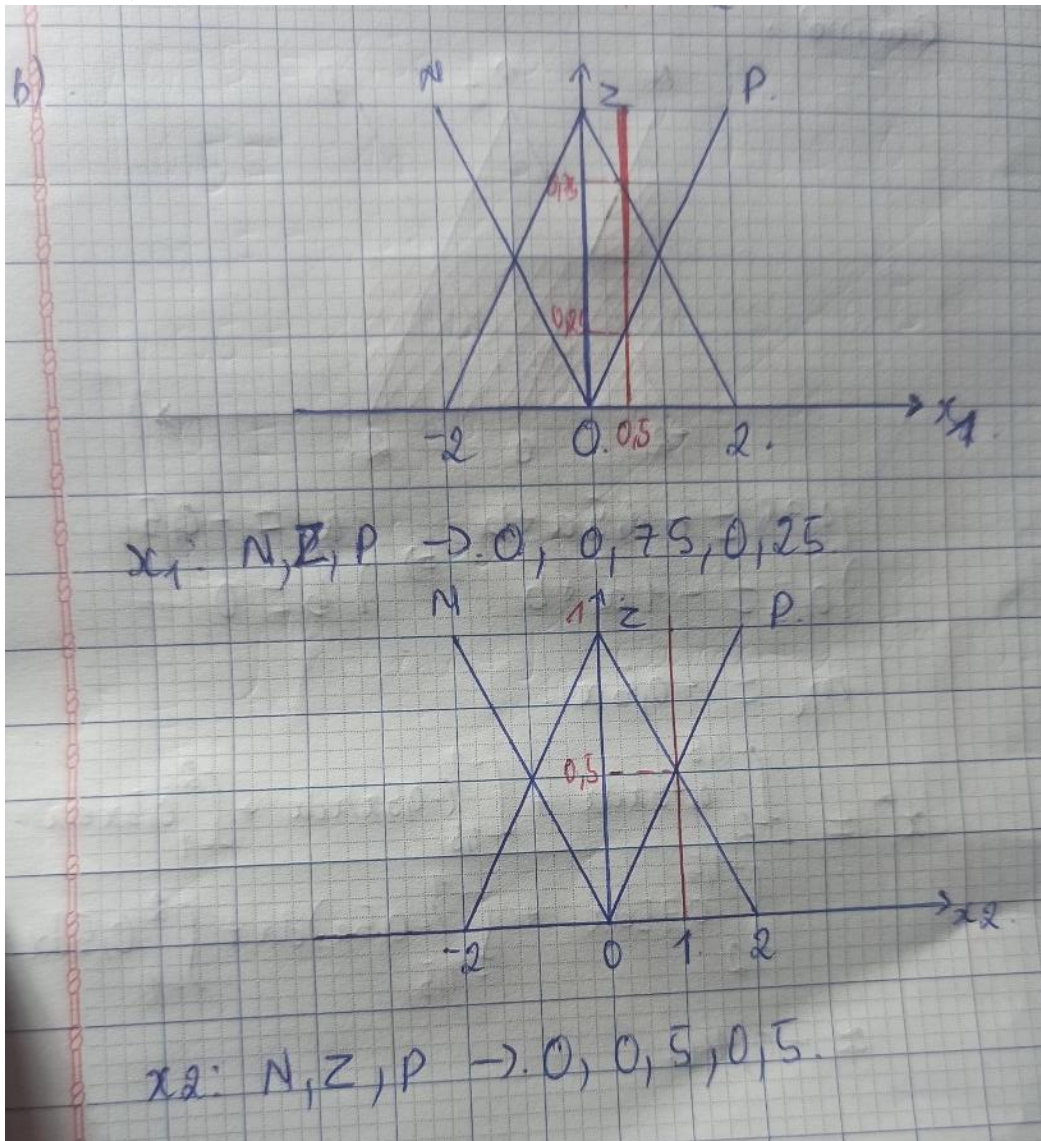 b)
N Z P.
0,75
0,25
-2 0. 0,5 2. x1
x1: N, Z, P → 0, 0,75, 0,25
N 1 Z P.
0,5
-2 0 1 2 x2.
x2: N, Z, P → 0, 0,5, 0,5.